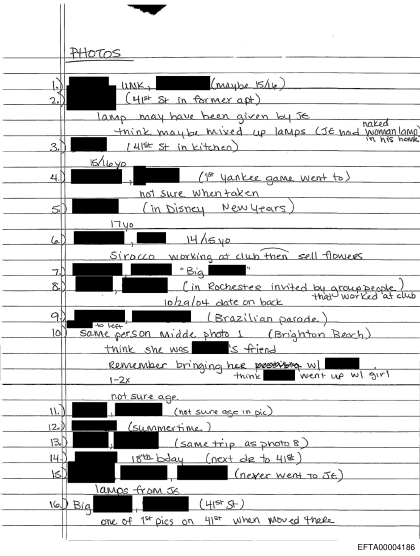 PHOTOS
1.) UNK, (maybe 15/16)
2.) (41st St in former apt)
lamp may have been given by JE
think maybe mixed up lamps (JE had naked woman lamp in his home)
3.) (41st St in kitchen)
15/16 yo
4.) , (1st Yankee game went to)
not sure when taken
5.) (in Disney New Years)
17yo
6.) , 14/15 yo
Sirocco working at club then sell flowers
7.) , "Big "
8.) , (in Rochester invited by group people that worked at club)
10/29/04 date on back
9.) , (Brazilian parade)
to left
10.) same person middle photo 1 (Brighton Beach)
think she was 's friend
Remember bringing her w/ .
1-2x think went up w/ girl
not sure age
11.) , (not sure age in pic)
12.) (summertime)
13.) , (same trip as photo 8)
14.) 18th bday (next dr to 41st)
15.) , , (never went to JE)
lamps from JE
16.) Big , (41st St)
one of 1st pics on 41st when moved there
EFTA00004186